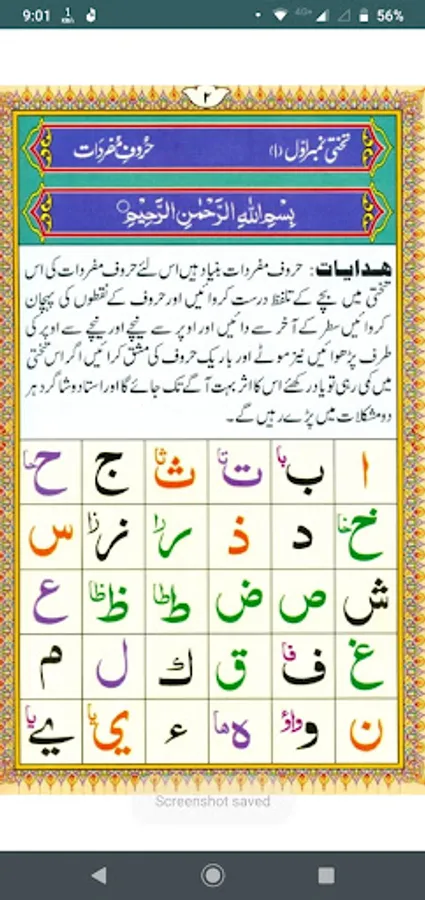 9:01 1 KB/s 4G+ 56%
۲
تختی نمبر اول (۱) حروف مفردات
بِسْمِ اللهِ الرَّحْمٰنِ الرَّحِيْمِ
هدایات: حروف مفردات بنیاد ہیں اس لئے حروف مفردات کی اس
تختی میں بچے کے تلفظ درست کروائیں اور حروف کے نقطوں کی پہچان
کروائیں سطر کے آخر سے دائیں اور اوپر سے نیچے اور نیچے سے اوپر کی
طرف پڑھوائیں نیز موٹے اور باریک حروف کی مشق کرائیں اگر اس تختی
میں کمی رہی تو یاد رکھئے اس کا اثر بہت آگے تک جائے گا اور استاد و شاگرد ہر
دو مشکلات میں پڑے رہیں گے۔
ا ب با ت تا ث ثا ج ح حا
خ خا د ذ ر را ز زا س
ش ص ض ط طا ظ ظا ع
غ ف فا ق ك ل م
ن و واؤ ه ها ء ي يا ے يا
Screenshot saved